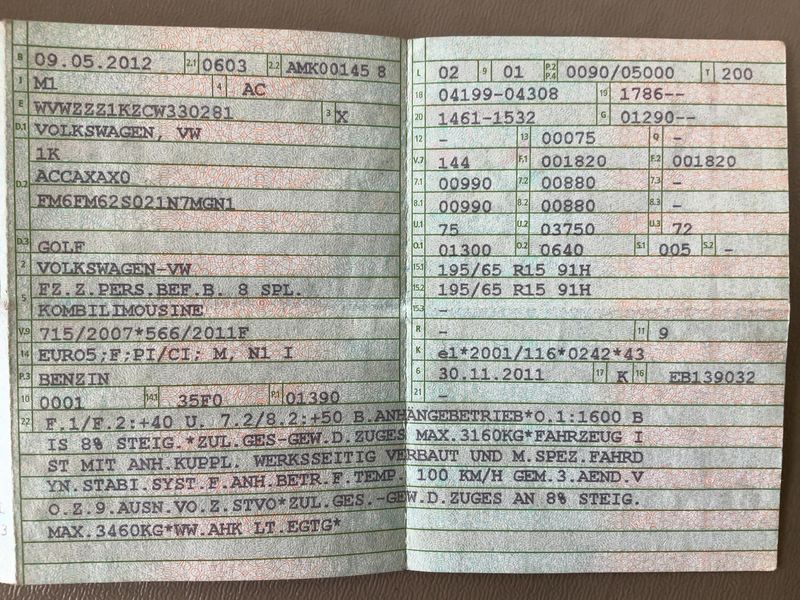 B 09.05.2012 2.1 0603 2.2 AMK00145 8
J M1 4 AC
E WVWZZZ1KZCW330281 3 X
D.1 VOLKSWAGEN, VW
1K
D.2 ACCAXAX0
FM6FM62S021N7MGN1
D.3 GOLF
2 VOLKSWAGEN-VW
5 FZ.Z.PERS.BEF.B. 8 SPL.
KOMBILIMOUSINE
V.9 715/2007*566/2011F
14 EURO5;F;PI/CI; M, N1 I
P.3 BENZIN
10 0001 14.1 35F0 P.1 01390
L 02 9 01 P.2 P.4 0090/05000 T 200
18 04199-04308 19 1786--
20 1461-1532 G 01290--
12 - 13 00075 Q -
V.7 144 F.1 001820 F.2 001820
7.1 00990 7.2 00880 7.3 -
8.1 00990 8.2 00880 8.3 -
U.1 75 U.2 03750 U.3 72
O.1 01300 O.2 0640 S.1 005 S.2 -
15.1 195/65 R15 91H
15.2 195/65 R15 91H
15.3 -
R - 11 9
K e1*2001/116*0242*43
6 30.11.2011 17 K 16 EB139032
21 -
22 F.1/F.2:+40 U. 7.2/8.2:+50 B.ANHÄNGEBETRIEB*O.1:1600 B
IS 8% STEIG.*ZUL.GES-GEW.D.ZUGES MAX.3160KG*FAHRZEUG I
ST MIT ANH.KUPPL. WERKSSEITIG VERBAUT UND M.SPEZ.FAHRD
YN.STABI.SYST.F.ANH.BETR.F.TEMP 100 KM/H GEM.3.AEND.V
O.Z.9.AUSN.VO.Z.STVO*ZUL.GES.-GEW.D.ZUGES AN 8% STEIG.
MAX.3460KG*WW.AHK LT.EGTG*